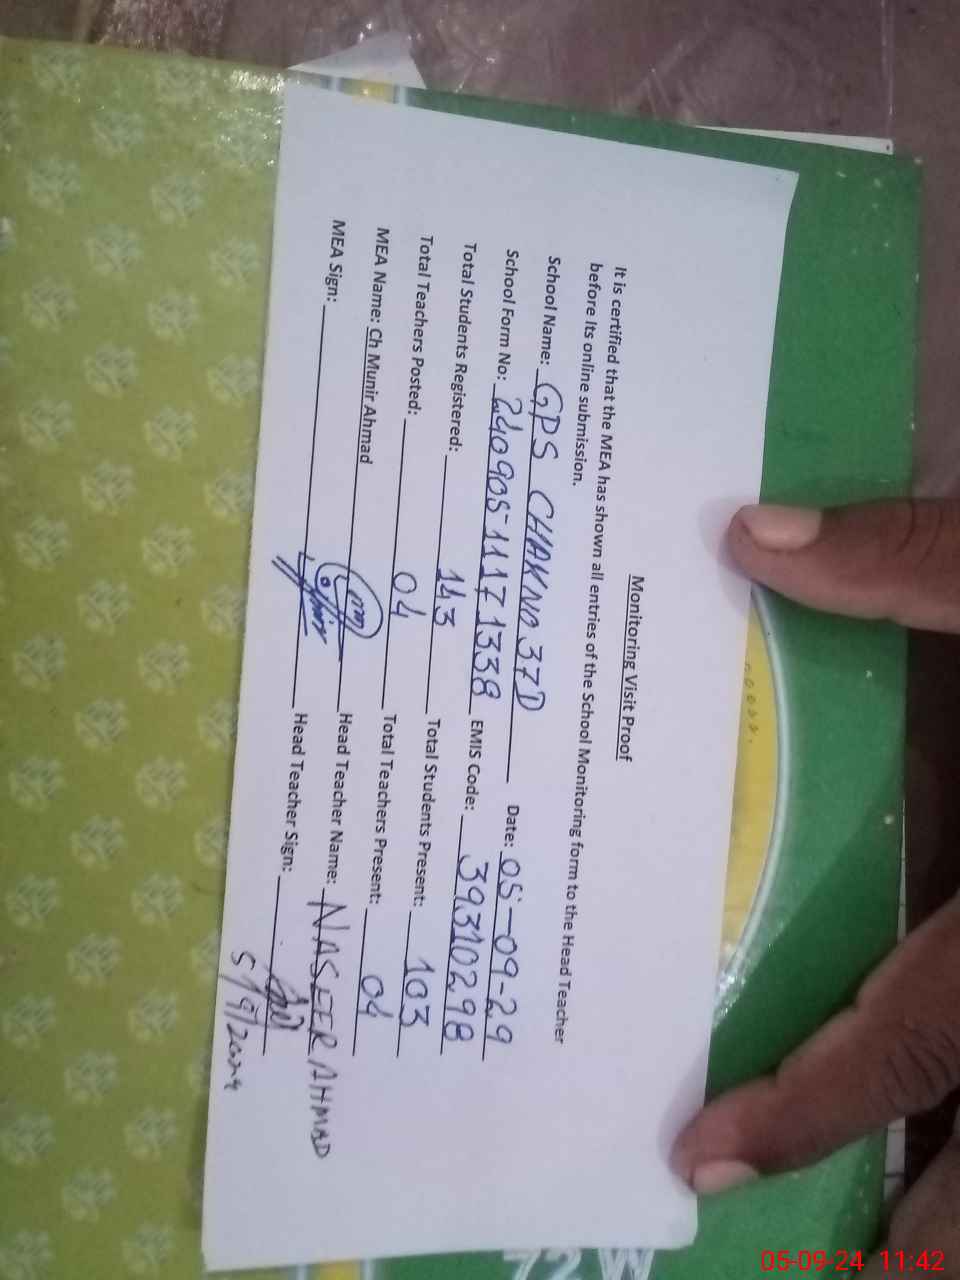 Monitoring Visit Proof
It is certified that the MEA has shown all entries of the School Monitoring form to the Head Teacher
before its online submission.
School Name: GPS CHAKNO 37D Date: 05-09-29
School Form No: 240905-11171338 EMIS Code: 39310298
Total Students Registered: 143 Total Students Present: 103
Total Teachers Posted: 04 Total Teachers Present: 04
MEA Name: Ch Munir Ahmad Head Teacher Name: NASEER AHMAD
MEA Sign: Head Teacher Sign:
5/9/2024
05-09-24 11:42